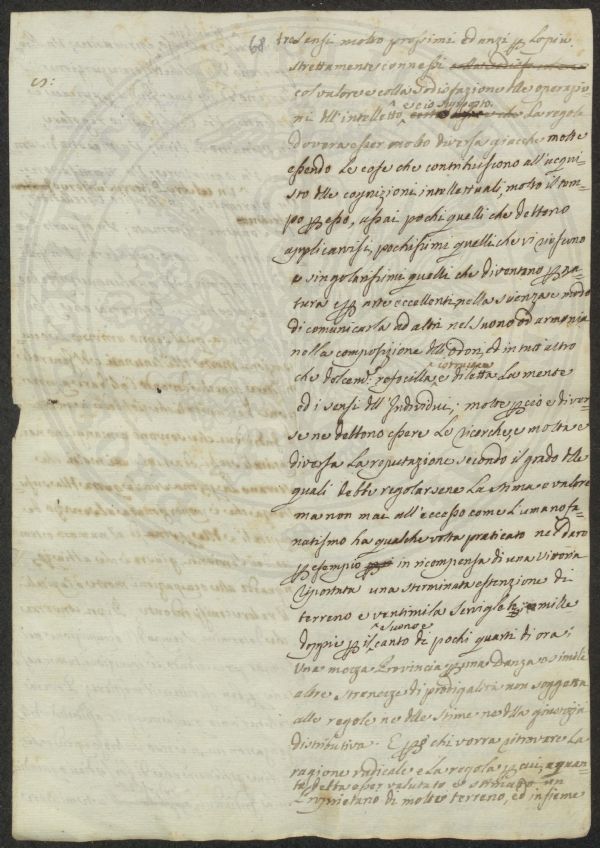 68 tre sensi molto prossimi ed anzi p lo più
strettamente connessi
S: col valore e colla sodisfazione dlle operazio
ni dll'intelletto e ciò supposto la regola
dovera esser molto diversa giacche molte
essendo le cose che contribuiscono all'acqui-
sto dlle cognizioni intellettuali, molto il tem-
po p esso, assai pochi quelli che devono
applicarvisi, pochissimi quelli che vi riescono
e singolarissimi quelli che diventano p na-
tura e p arte eccellenti nella scienza e modo
di comunicarla ad altri nel suono od armonia
nella composizione dlli odori, ed in tutt'altro
che dolcemte. refocilla e diletta la mente
ed i sensi dll'Individui; molte p cio e diver-
se ne devono essere le ricerche, e molta e
diversa la reputazione secondo il grado dlle
quali debbe regolarsene la stima e valore
ma non mai all'eccesso come l'umano fa-
natismo ha qualche volta praticato nel dare
p esempio in ricompensa di una vittoria
riportata una sterminata estenzione di
terreno e ventimila servi, e mille
doppie p il suono e canto di pochi quarti di ora;
una mezza Provincia p una Danza, e simili
altre stranezze di prodigalità non soggetta
alle regole ne dlle stime ne dlla giustizia
distributiva. E p chi vorra ritrovare la
ragione radicale e la regola p cui, e quan-
to debba esser valutato e stimato un
Proprietario di molto terreno, ed insieme